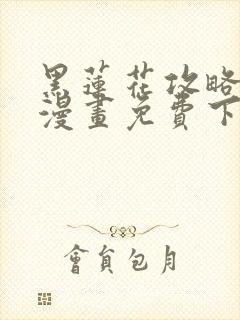 黑蓮花攻略
漫畫免費下
會員包月